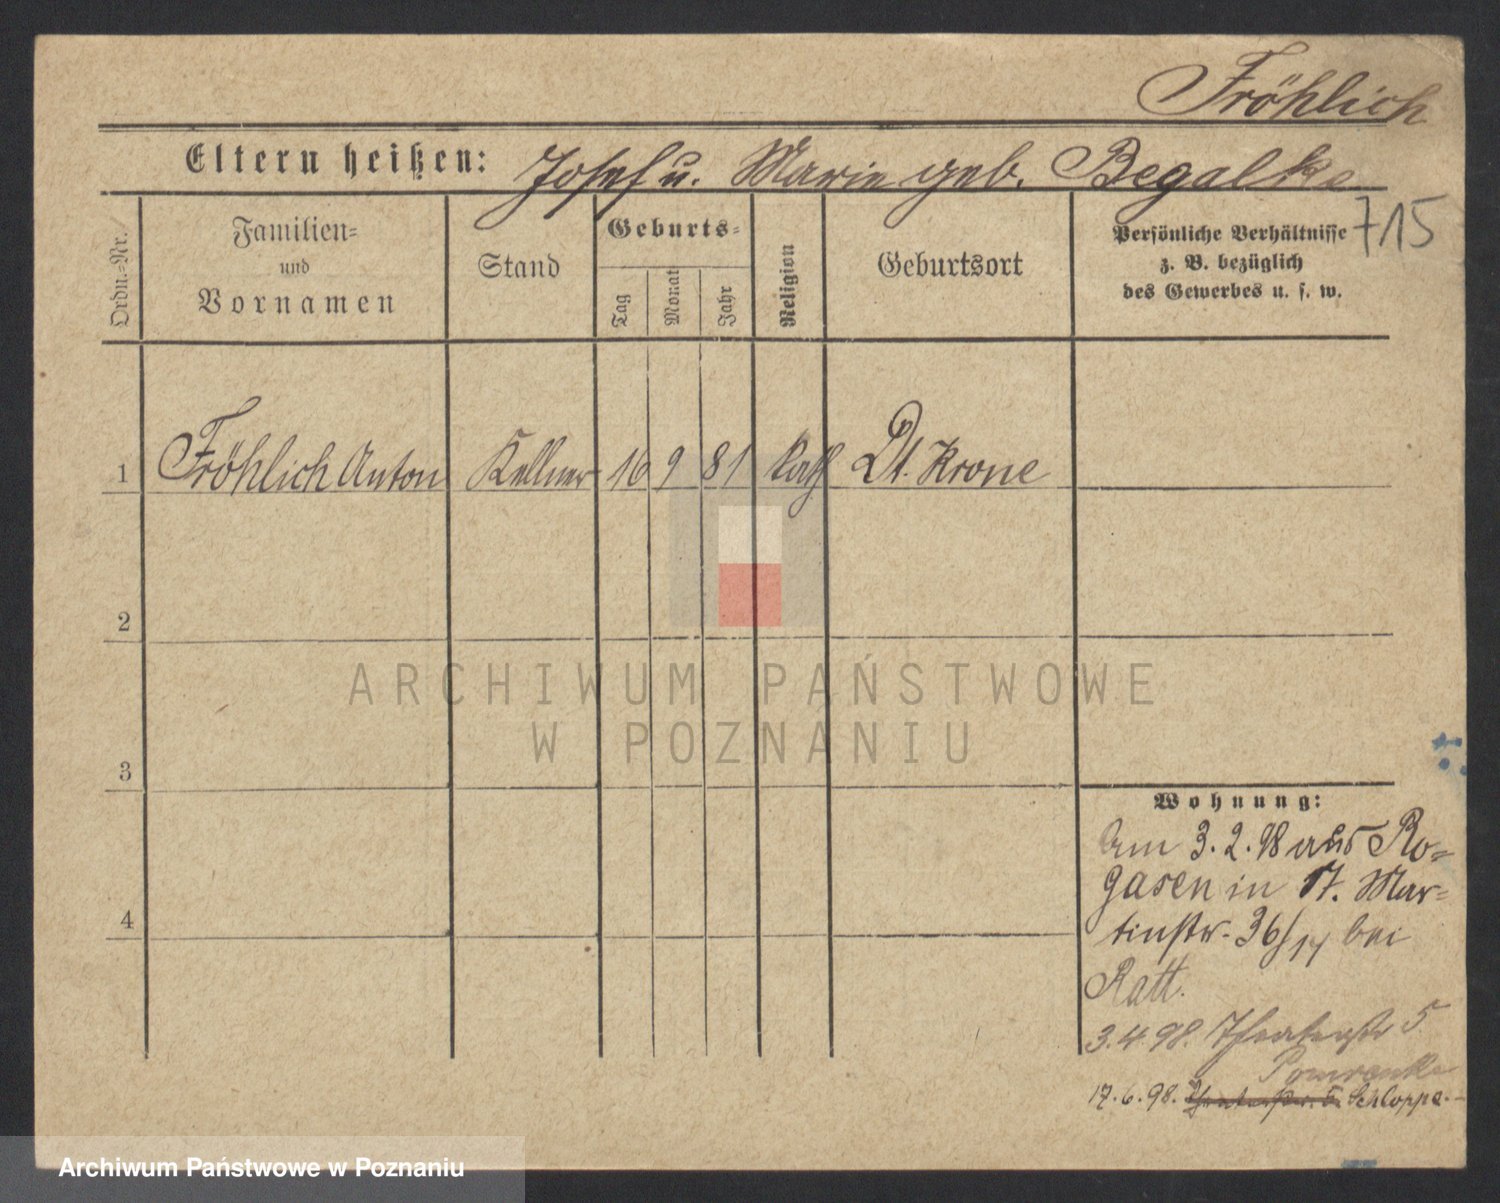 Fröhlich
Eltern heißen: Josef u. Marie geb. Begalke
715
Ordn.-Nr.
Familien-
und
Vornamen
Stand
Geburts-
Tag
Monat
Jahr
Religion
Geburtsort
Persönliche Verhältnisse
z. B. bezüglich
des Gewerbes u. s. w.
1 Fröhlich Anton Kellner 16 9 81 kath Dt. Krone
2
3
4
ARCHIWUM PAŃSTWOWE
W POZNANIU
Wohnung:
Am 3. 2. 98 aus Ro=
gasen in St. Mar=
tinstr. 36/ bei
Ratt.
3.4.98. Theaterstr 5
Pomrenke
17.6.98. Theaterstr. 5. Schloppe.
Archiwum Państwowe w Poznaniu